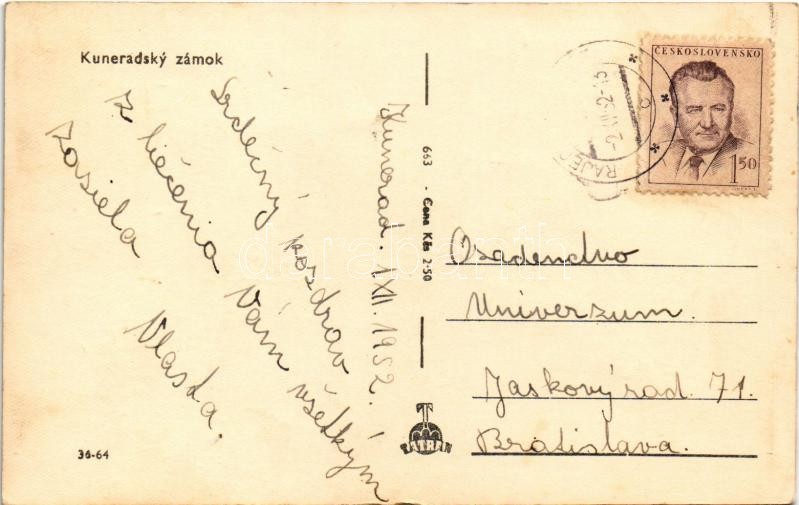 Kuneradský zámok
Srdečný pozdrav
z liečenia Vám všetkým
zasiela Vlasta.
Kunerad. 1 XII. 1952.
663 - Cena Kčs 2·50
TATRAN
36-64
ČESKOSLOVENSKO
1 50
RAJEC
Osadenstvo
Univerzum.
Jaskový rad. 71.
Bratislava.
darabanth